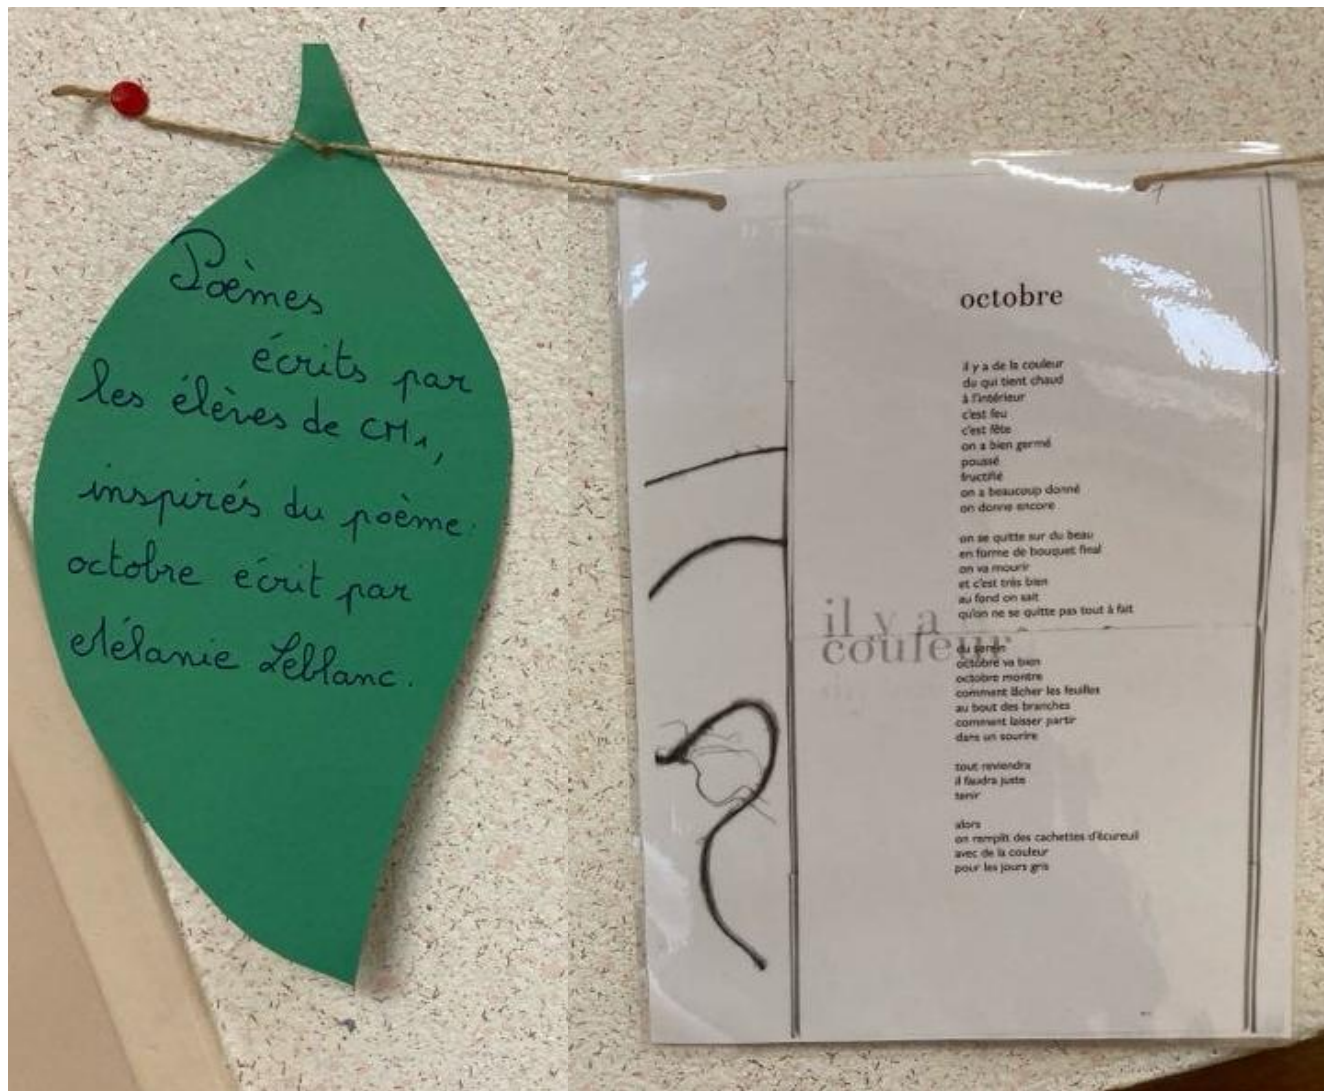 Poèmes
écrits par
les élèves de CM1,
inspirés du poème
octobre écrit par
Mélanie Leblanc.
octobre
il y a de la couleur
du qui tient chaud
à l'intérieur
c'est feu
c'est fête
on a bien germé
poussé
fructifié
on a beaucoup donné
on donne encore
on se quitte sur du beau
en forme de bouquet final
on va mourir
et c'est très bien
au fond on sait
qu'on ne se quitte pas tout à fait
il y a
couleur
du serein
octobre va bien
octobre montre
comment lâcher les feuilles
au bout des branches
comment laisser partir
dans un sourire
tout reviendra
il faudra juste
tenir
alors
on remplit des cachettes d'écureuil
avec de la couleur
pour les jours gris